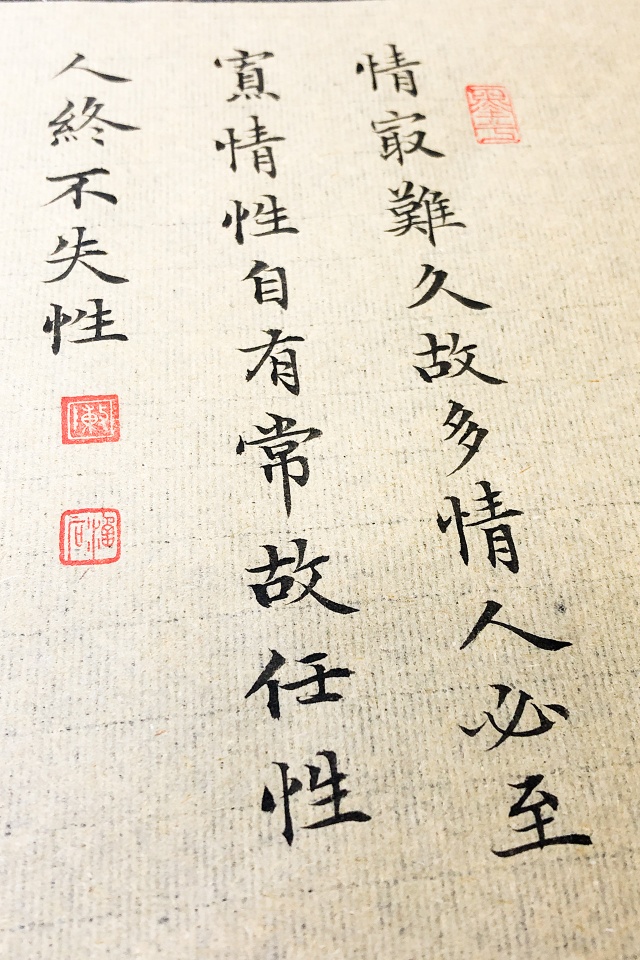 情㝡難久故多情人必至
寡情性自有常故任性
人終不失性